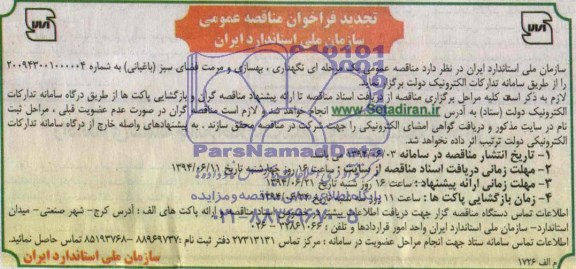 تجدید فراخوان مناقصه عمومی
سازمان ملی استاندارد ایران
سازمان ملی استاندارد ایران در نظر دارد مناقصه عمومی یک مرحله ای نگهداری ، بهسازی و مرمت فضای سبز (باغبانی) به شماره ۲۰۰۹۴۳۰۰۱۰۰۰۰۴
را از طریق سامانه تدارکات الکترونیک دولت برگزار
لازم به ذکر است کلیه مراحل برگزاری مناقصه از دریافت اسناد مناقصه تا ارائه پیشنهاد مناقصه گران و بازگشایی پاکت ها از طریق درگاه سامانه تدارکات
الکترونیک دولت (ستاد) به آدرس www.Setadiran.ir انجام خواهد شد و لازم است مناقصه گران در صورت عدم عضویت قبلی ، مراحل ثبت
نام در سایت مذکور و دریافت گواهی امضای الکترونیکی را جهت شرکت در مناقصه محقق سازند . به پیشنهادهای واصله خارج از درگاه سامانه تدارکات
الکترونیک دولت ترتیب اثر داده نخواهد شد.
۱- تاریخ انتشار مناقصه در سامانه ۱۳۹۴/۰۶/۰۳ می باشد
۲- مهلت زمانی دریافت اسناد مناقصه از سایت : ساعت ۱۶ روز چهارشنبه تاریخ ۱۳۹۴/۰۶/۱۱
۳- مهلت زمانی ارائه پیشنهاد : ساعت ۱۶ روز شنبه تاریخ ۱۳۹۴/۰۶/۲۱
۴- زمان بازگشایی پاکت ها : ساعت ۱۱
اطلاعات تماس دستگاه مناقصه گزار جهت دریافت اطلاعات بیشتر ارائه پاکت های الف : آدرس کرج- شهر صنعتی - میدان
استاندارد- سازمان ملی استاندارد ایران واحد امور قراردادها و تلفن :
اطلاعات تماس سامانه ستاد جهت انجام مراحل عضویت در سامانه : مرکز تماس ۲۷۳۱۳۱۳۱ دفتر ثبت نام :۸۸۹۶۹۷۳۷- ۸۵۱۹۳۷۶۸ تماس حاصل نمائید.
م الف ۱۷۲۶
سازمان ملی استاندارد ایران
ParsNamadData